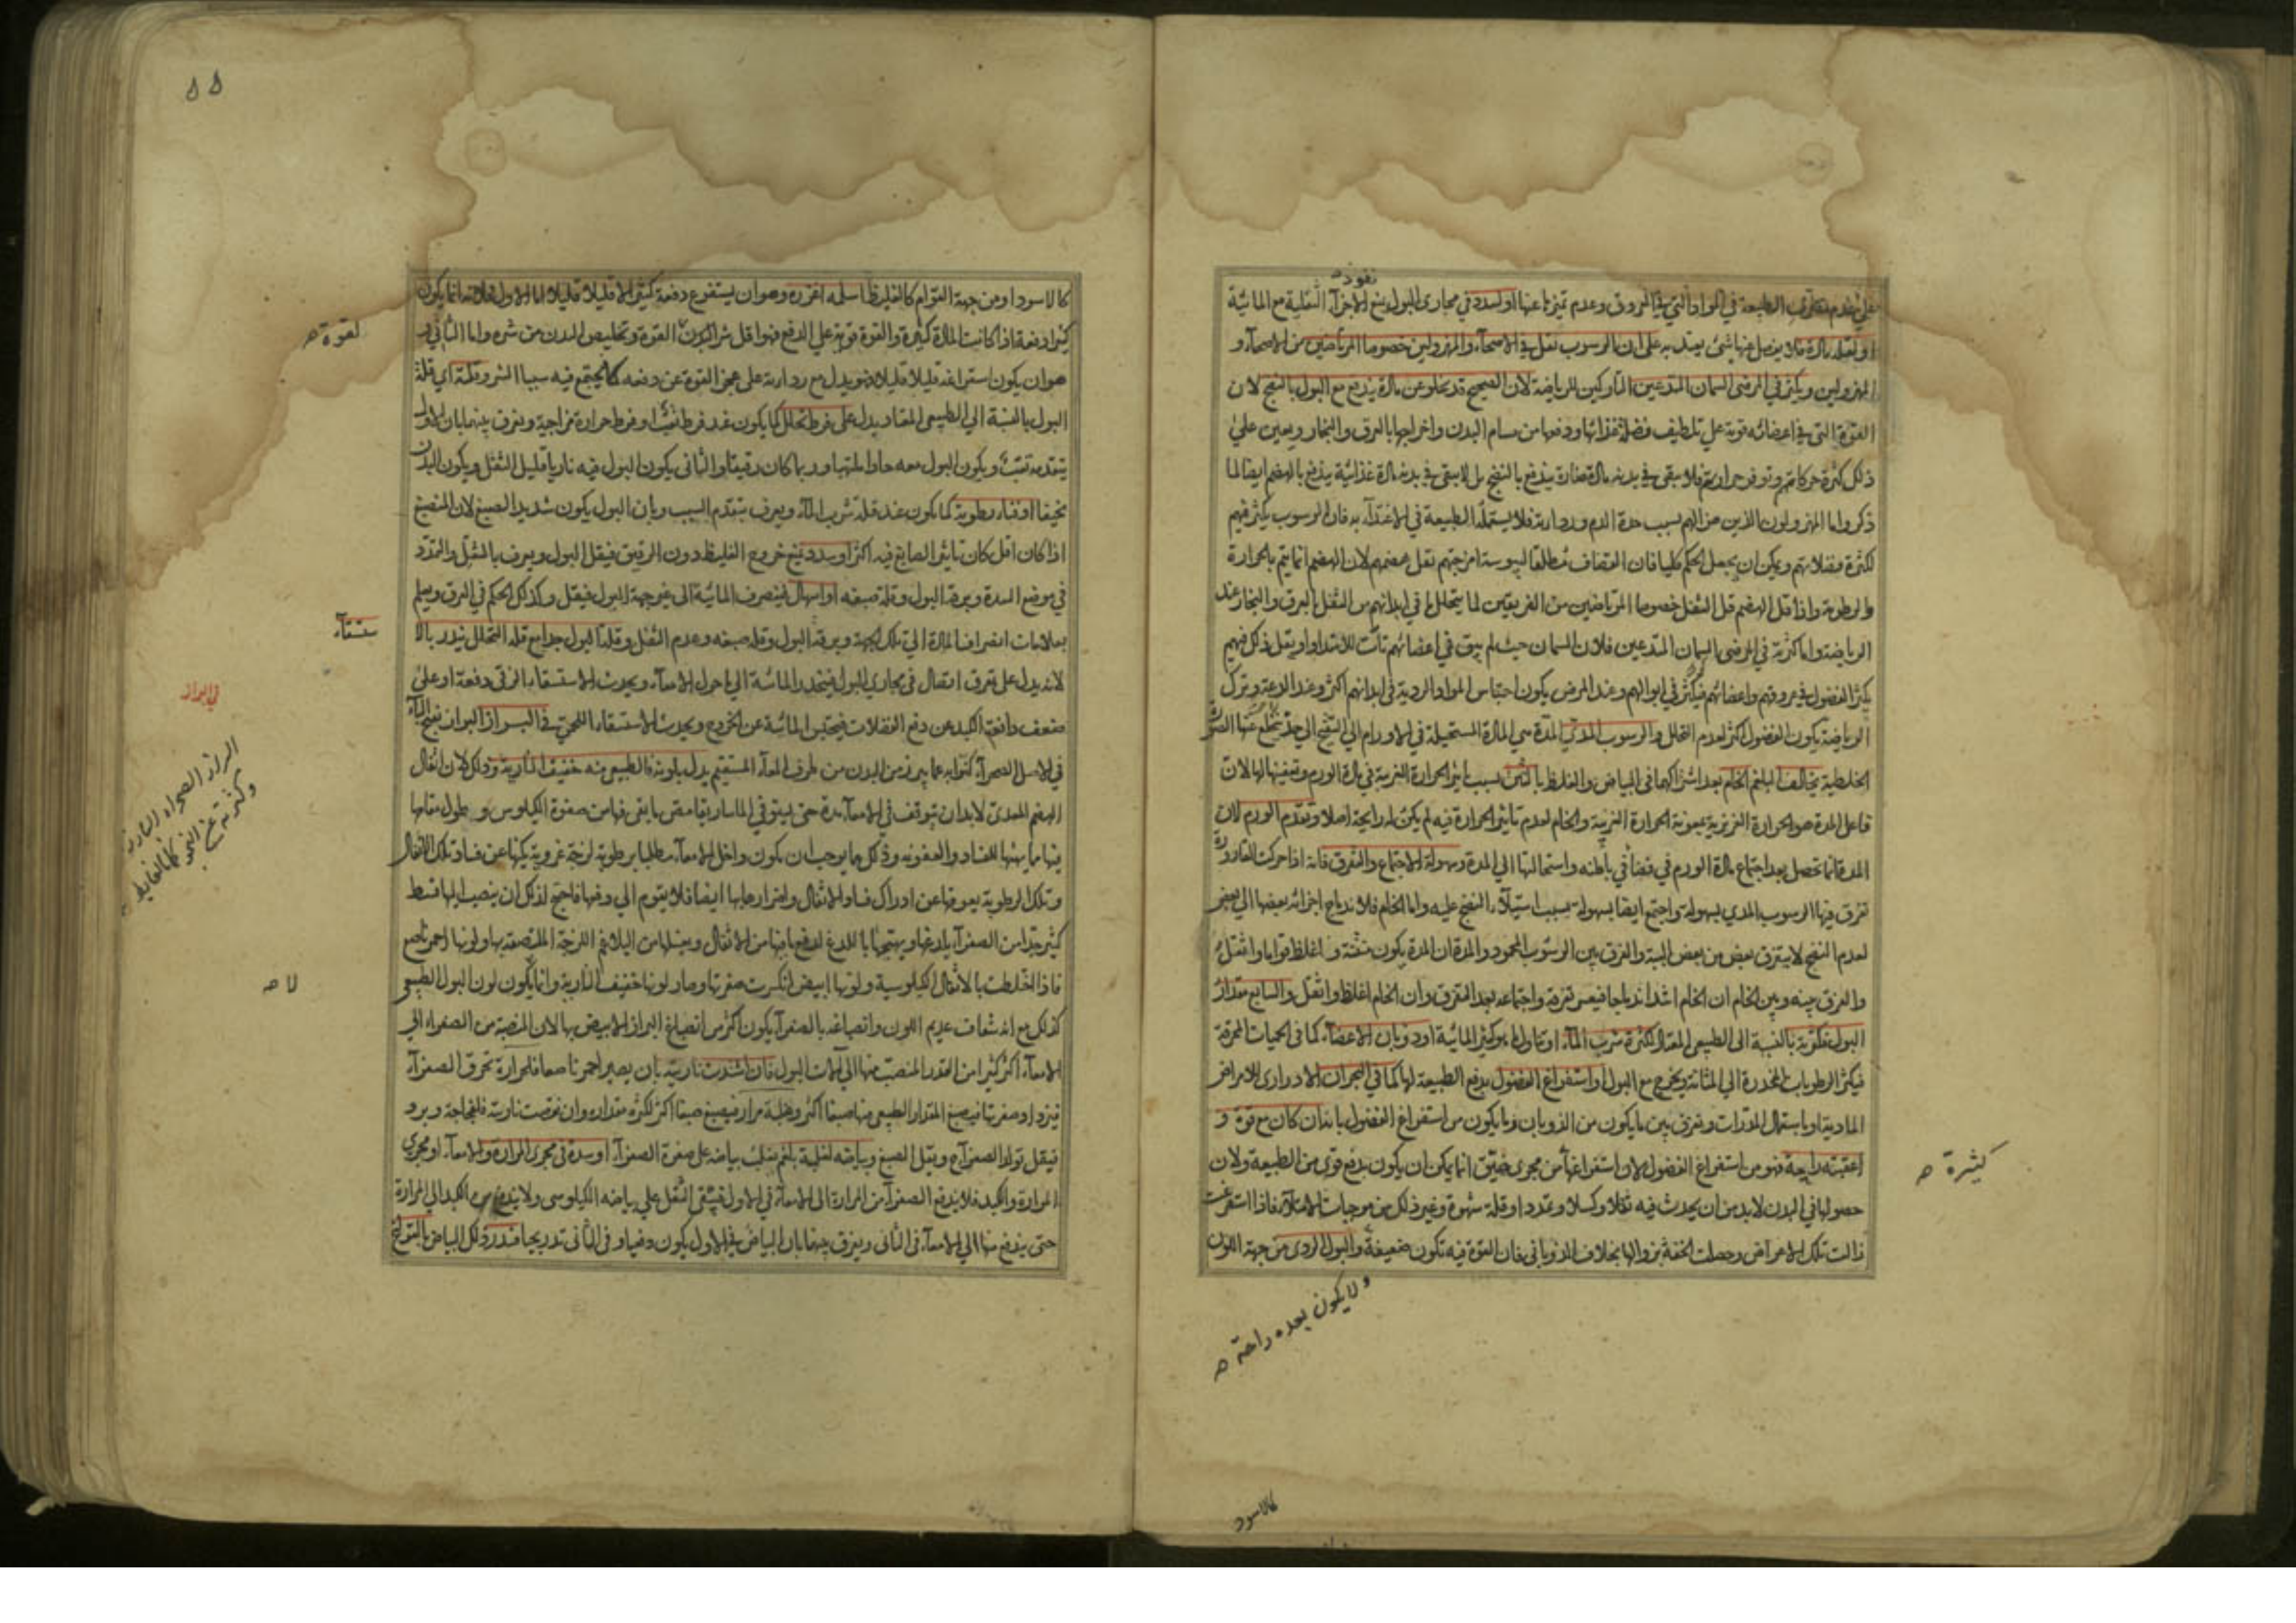 نفوذ
على عدم تصرف الطبيعة في المواد التي في العروق وعدم تميزها عنها او لسدد في مجاري البول يمنع الاجزاء الثقلية مع المائية
او لقلة مادة فلا ينفصل عنها شئ يعتد به على ان الرسوب يقل في الاصحاء والمهزولين خصوصا المرتاضين من الاصحاء و
المهزولين ويكثر في المرضى السمان المتدعين التاركين للرياضة لان الصحيح قد يخلو عن مادة يندفع مع البول بالنضج لان
القوة التي في اعضائه قوية على تلطيف فضلة غذائها ودفعها من مسام البدن واخراجها بالعرق والبخار ويعين على
ذلك كثرة حركاتهم وتوفر حرارتهم فلا يبقى في بدنه مادة ضارة يندفع بالنضج بل لا يبقى في بدنه مادة غذائية يندفع بالهضم ايضا لما
ذكر واما المهزولون الذين هزالهم بسبب حدة الدم وردارته فلا يستعمله الطبيعة في الاغتذاء به فان الرسوب يكثر فيهم
لكثرة فضلاتهم ويمكن ان يجعل الحكم كليا فان القضاف مطلقا ليبوسة امزجتهم يقل هضمهم لان الهضم انما يتم بالحرارة
والرطوبة واذا قل الهضم قل الثفل خصوصا المرتاضين من الفريقين لما يتحلل ما في ابدانهم من الثفل بالعرق والبخار عند
الرياضة واما كثرته في المرضى السمان المتدعين فلان السمان حيث لم يبق في اعضائهم تأت للامتداد او يقل ذلك فيهم
يكثر الفضول في عروقهم واعضائهم فيكثر في ابوالهم وعند المرض يكون احتباس المواد الردية في ابدانهم اكثر وعند الدعة وترك
الرياضة يكون الفضول اكثر لعدم التحلل والرسوب المدي المدة هي المادة المستحيلة في الاورام الى النضج الى حد يخلع عنها الصورة
الخلطية يخالف البلغم الخام بعد اشتراكهما في البياض والغلظ بالنتن بسبب تأثير الحرارة الغريبة في مادة الورم وتعفينها لها لان
فاعل المدة هو الحرارة الغريزية بمعونة الحرارة الغريبة والخام لعدم تأثير الحرارة فيه لم يكن له رايحة اصلا وتقدم الورم لان
المدة انما تحصل بعد اجتماع مادة الورم في فضاء في باطنه واستحالتها الى المدة وسهولة الاجتماع والتفرق فانه اذا حركت القارورة
تفرق فيها الرسوب المدي بسهولة واجتمع ايضا بسهولة بسبب استيلاء النضج عليه واما الخام فلاندماج اجزائه بعضها الى بعض
لعدم النضج لا يتفرق بعض من بعض البتة والفرق بين الرسوب المحمود والمدة ان المدة يكون منتنة و اغلظ قواما واثقل
والفرق بينه وبين الخام ان الخام اشد اندماجا فيعسر تفرقه واجتماعه بعد التفرق وان الخام اغلظ واثقل والسابع مقدار
البول فكثرته بالنسبة الى الطبيعي المعتدل لكثرة شرب الماء او تناول ما هو كثير المائية او ذوبان الاعضاء كما في الحميات المحرقة
فيكثر الرطوبات المنحدرة الى المثانة ويخرج مع البول او استفراغ الفضول بدفع الطبيعة لها كما في البحران الادراري للامراض
المادية او باستعمال المدرات ويفرق بين ما يكون من الذوبان وما يكون من استفراغ الفضول بانه ان كان مع قوة و
اعقبته راحة فهو من استفراغ الفضول لان استفراغها من مجرى ضيق انما يمكن ان يكون بدفع قوي من الطبيعة ولان
كثيرة صح
حصولها في البدن لا بد من ان يحدث فيه ثقلا وكسلا وتمددا وقلة شهوة وغير ذلك من موجبات الامتلاء فاذا استفرغت
زالت تلك الاعراض وحصلت الخفة بزوالها بخلاف الذوباني فان القوة فيه تكون ضعيفة والبول الردي من جهة اللون
ولا يكون بعده راحة صح
كالاسود
۵۵
كالاسود او من جهة القوام كالغليظ اسلمه اغزره وهو ان يستفرغ دفعة كثيرا لا قليلا قليلا اما الاول فلانه انما يكون
كثيرا دفعة اذا كانت المادة كثيرة والقوة قوية على الدفع فهو اقل شرا لكون القوة وتخليص البدن من شره واما الثاني و
لقوة صح
هو ان يكون استفراغه قليلا قليلا فهو يدل مع ردارته على عجز القوة عن دفعه كما يجتمع فيه سببا الشر وقلته اي قلة
البول بالنسبة الى الطبيعي المعتاد يدل على فرط تحلل كما يكون عند فرط تعب او فرط حرارة مزاجية ويفرق بينهما بان الاول
يتقدمه تعب ويكون البول معه حادا ملتهبا وربما كان رقيقا والثاني يكون البول فيه ناريا قليل الثفل ويكون البدن
نحيفا او فناء رطوبة كما يكون عند قلة شرب الماء ويعرف بتقدم السبب وبان البول يكون شديد الصبغ لان المنصبغ
اذا كان اقل كان تأثير الصابغ فيه اكثر او سدد يمنع خروج الغليظ دون الرقيق فيقل البول ويعرف بالثقل والتمدد
في موضع السدة وبرقة البول وقلة صبغه او اسهال ينصرف المائية الى غير جهة البول فيقل وكذلك الحكم في العرق ويعلم
بعلامات انصراف المادة الى تلك الجهة وبرقة البول وقلة صبغه وعدم الثفل وقلة البول جدا مع قلة التحلل ينذر بالا
ستسقاء
لانه يدل على تفرق اتصال في مجاري البول فينحدر المائية الى ما حول الامعاء ويحدث الاستسقاء الزقي دفعة او على
ضعف دافعة الكبد عن دفع الفضلات فيحتبس المائية عن الخروج ويحدث الاستسقاء اللحمي في البراز البراز بفتح الباء
في البراز
في الاصل الصحراء كنوا به عما يبرز من البدن من طرف المعاء المستقيم يدل بلونه فالطبيعي منه خفيف النارية وذلك لان اثفال
الهضم المعدي لا بد ان يتوقف في الامعاء مدة حتى يستوفي الماساريقا مص ما بقي فيها من صفوة الكيلوس و طول مقامها
فيها مما يهيئها للفساد والعفونة وذلك مما يوجب ان يكون داخل الامعاء مطليا برطوبة لزجة غروية يكنها عن فساد تلك الاثفال
وتلك الرطوبة يعوقها عن ادراك فساد الاثفال واضرارها بها ايضا فلا يقوم الى دفعها فاحتيج لذلك ان ينصب اليها قسط
كثير جدا من الصفراء يلدغها ويهيجها باللدغ لدفع ما فيها من الاثفال ويغسلها من البلاغم اللزجة الملتصقة بها ولونها احمر ناصع
فاذا اختلطت بالاثفال الكيلوسية ولونها ابيض انكسرت صفرتها وصار لونها خفيف النارية وانما يكون لون البول الطبيعي
لا صح
كذلك مع انه شفاف عديم اللون وانصباغه بالصفراء يكون اكثر من انصباغ البراز الابيض بها لان المنصبة من الصفراء الى
الامعاء اكثر كثيرا من القدر المنصب منها الى آلات البول فان اشتدت ناريته بان يصير احمر ناصعا فلحرارة تحرق الصفراء
فيزداد صفرتها فيصبغ المقدار الطبيعي منها صبغا اكثر وغلبة مرار فيصبغ صبغا اكثر لكثرة مقداره وان نقصت ناريته فلفجاجة وبرد
فيقل تولد الصفراء ويقل الصبغ وبياضه لغلبة بلغم يغلب بياضه على صفرة الصفراء او سدة في مجرى المرارة والامعاء او مجرى
المرارة والكبد فلا يندفع الصفراء من المرارة الى الامعاء في الاول فيبقى الثفل على بياضه الكيلوسي ولا يندفع من الكبد الى المرارة
حتى يندفع منها الى الامعاء في الثاني ويفرق بينهما بان البياض في الاول يكون دفعيا وفي الثاني تدريجا فينذر ذلك البياض بالقولنج